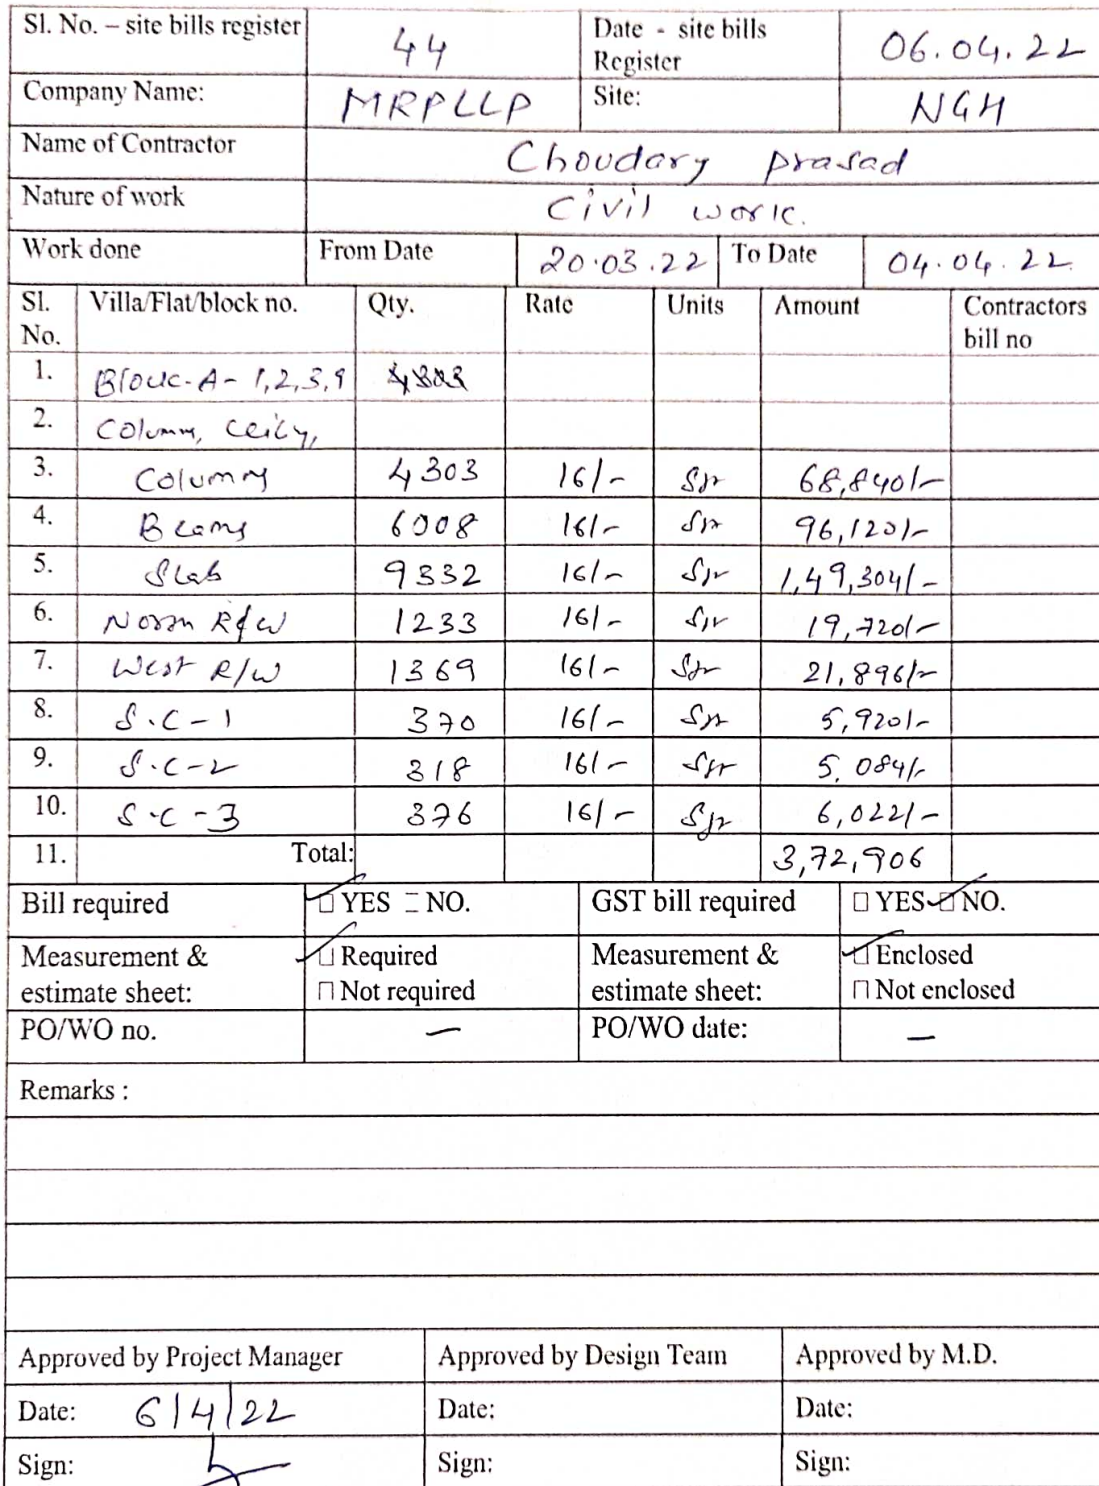 Sl. No. – site bills register 44 Date - site bills Register 06.04.22
Company Name: MRPLLP Site: NGH
Name of Contractor Choudary prasad
Nature of work Civil work.
Work done From Date 20.03.22 To Date 04.04.22
Sl. No. Villa/Flat/block no. Qty. Rate Units Amount Contractors bill no
1. Block-A- 1,2,3,9
2. Column,
3. Columns 4303 16/- Sft 68,840/-
4. Beams 6008 16/- Sft 96,120/-
5. Slab 9332 16/- Sft 1,49,304/-
6. North R/W 1233 16/- Sft 19,720/-
7. West R/W 1369 16/- Sft 21,896/-
8. S.C-1 370 16/- Sft 5,920/-
9. S.C-2 318 16/- Sft 5,084/-
10. S.C-3 376 16/- Sft 6,022/-
11. Total: 3,72,906
Bill required YES NO. GST bill required YES NO.
Measurement & estimate sheet: Required Not required Measurement & estimate sheet: Enclosed Not enclosed
PO/WO no. — PO/WO date: —
Remarks :
Approved by Project Manager Approved by Design Team Approved by M.D.
Date: 6/4/22 Date: Date:
Sign: Sign: Sign: